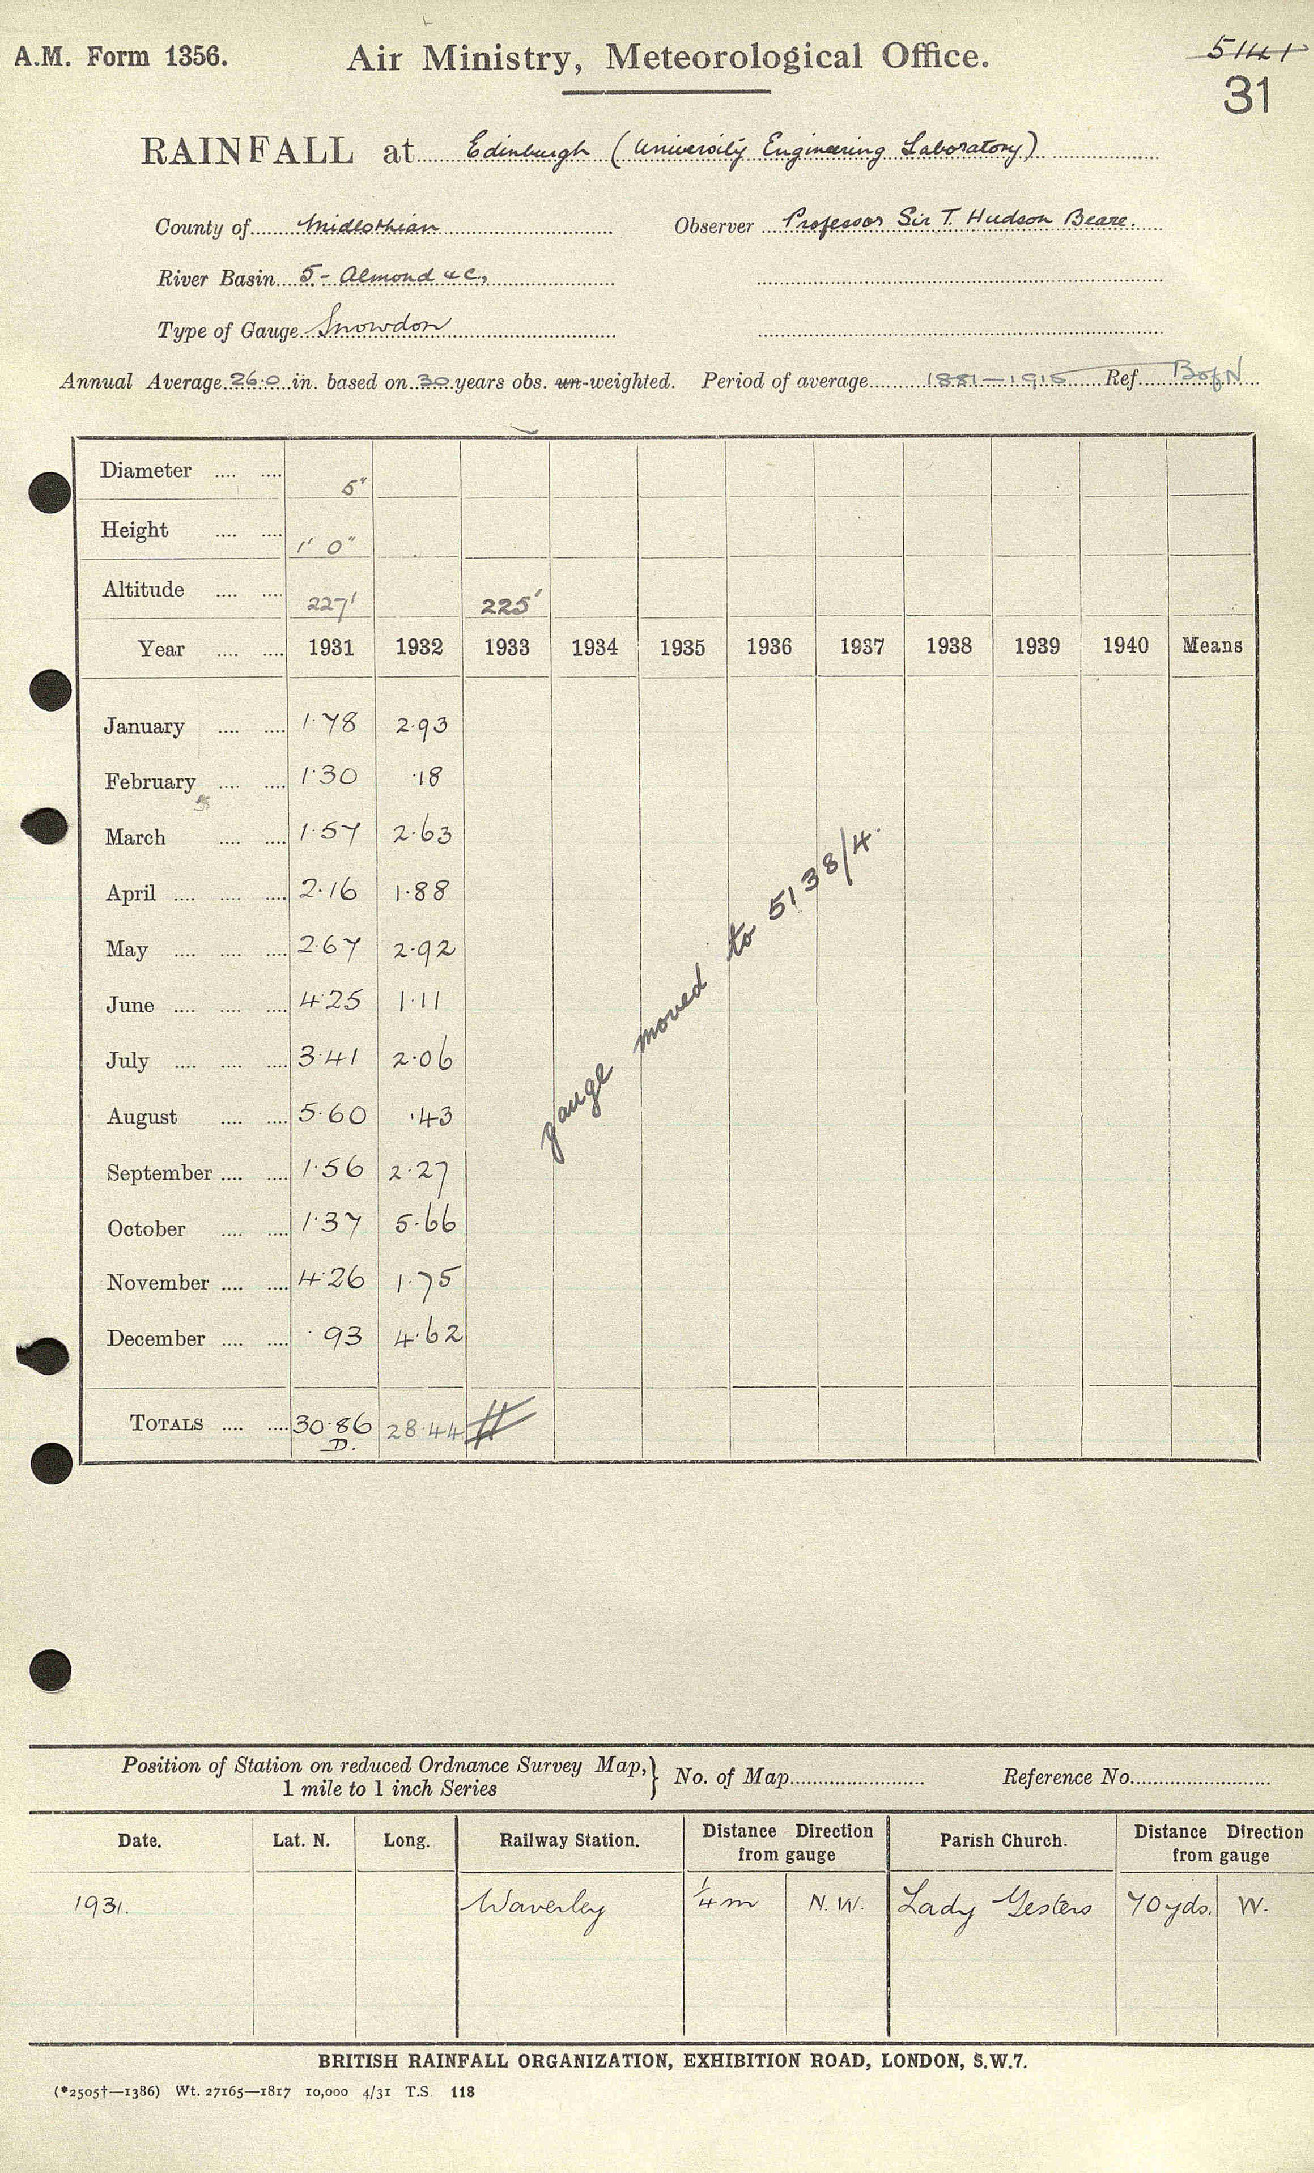 A.M. Form 1356.
Air Ministry, Meteorological Office.
5141
31
RAINFALL at Edinburgh (University Engineering Laboratory)
County of Midlothian Observer Professor Sir T. Hudson Beare.
River Basin 5 - Almond &c,
Type of Gauge Snowdon
Annual Average 26.0 in. based on 30 years obs. un-weighted. Period of average 1881-1915 Ref. B of N
Diameter 5"
Height 1' 0"
Altitude 227' 225'
Year 1931 1932 1933 1934 1935 1936 1937 1938 1939 1940 Means
January 1.78 2.93
February 1.30 .18
March 1.57 2.63
April 2.16 1.88
May 2.67 2.92
June 4.25 1.11
July 3.41 2.06
August 5.60 .43
September 1.56 2.27
October 1.37 5.66
November 4.26 1.75
December .93 4.62
TOTALS 30.86 28.44
D.
gauge moved to 5138/4.
Position of Station on reduced Ordnance Survey Map, 1 mile to 1 inch Series } No. of Map Reference No.
Date. Lat. N. Long. Railway Station. Distance Direction from gauge Parish Church. Distance Direction from gauge
1931. Waverley 1/4 m N.W. Lady Yesters 70 yds. W.
BRITISH RAINFALL ORGANIZATION, EXHIBITION ROAD, LONDON, S.W.7.
(*2505†—1386) Wt. 27165—1817 10,000 4/31 T.S. 118